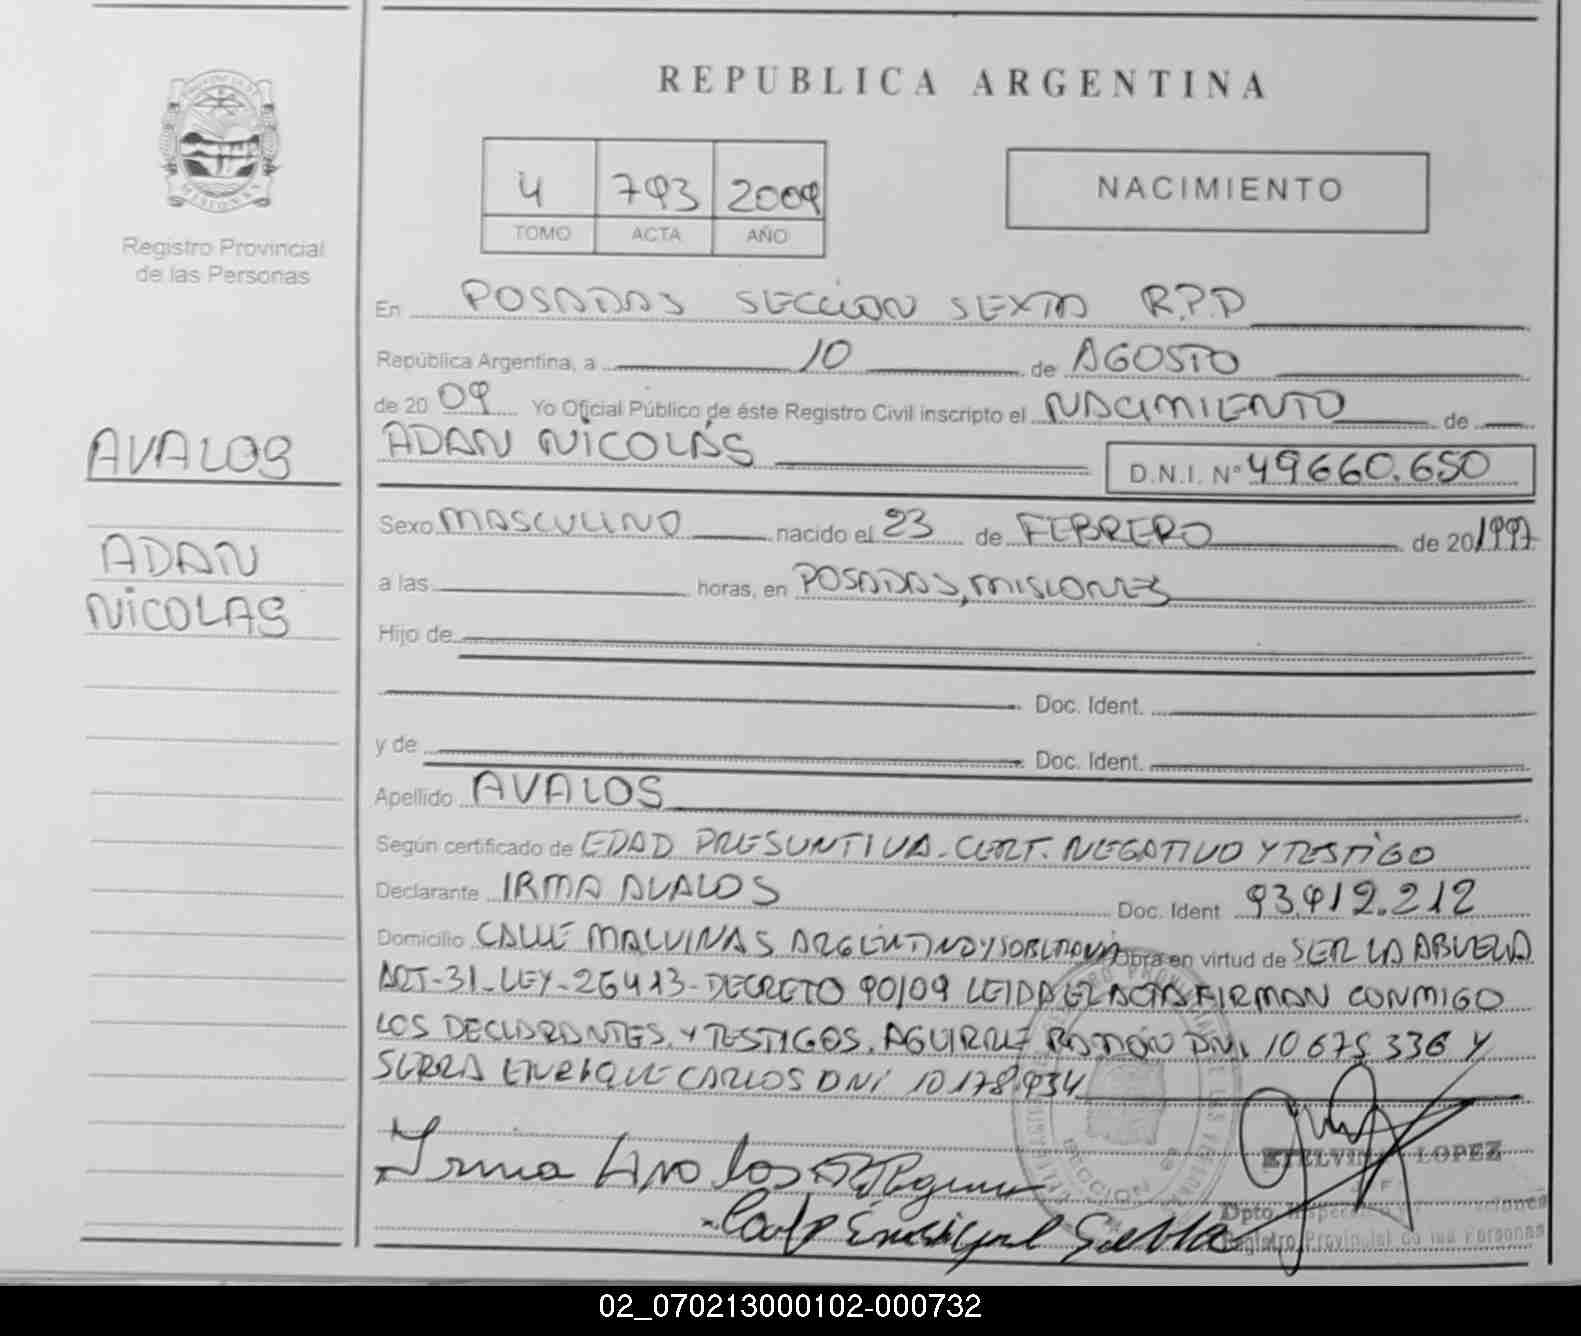 REPUBLICA ARGENTINA
4 793 2009
TOMO ACTA AÑO
NACIMIENTO
Registro Provincial
de las Personas
AVALOS
ADAN
NICOLAS
En POSADAS SECCION SEXTA R.P.P
República Argentina, a 10 de AGOSTO
de 2009 Yo Oficial Público de éste Registro Civil inscripto el NACIMIENTO de
ADAN NICOLÁS D.N.I. Nº 49660.650
Sexo MASCULINO nacido el 23 de FEBRERO de 20 1997
a las horas, en POSADAS, MISIONES
Hijo de
Doc. Ident.
y de Doc. Ident.
Apellido AVALOS
Según certificado de EDAD PRESUNTIVA. CERT. NEGATIVO Y TESTIGO
Declarante IRMA AVALOS Doc. Ident 93.912.212
Domicilio CALLE MALVINAS ARGENTINAS Obra en virtud de SER LA ABUELA
ART-31-LEY-26413-DECRETO 90/09 LEIDA EL ACTA FIRMAN CONMIGO
LOS DECLARANTES. Y TESTIGOS. AGUIRRE RAMÓN DNI 10 675 336 Y
SERRA ENRIQUE CARLOS DNI 10 178.934
Irma Avalos
ETELVINA LOPEZ
Dpto.
Registro Provincial de las Personas
02_070213000102-000732